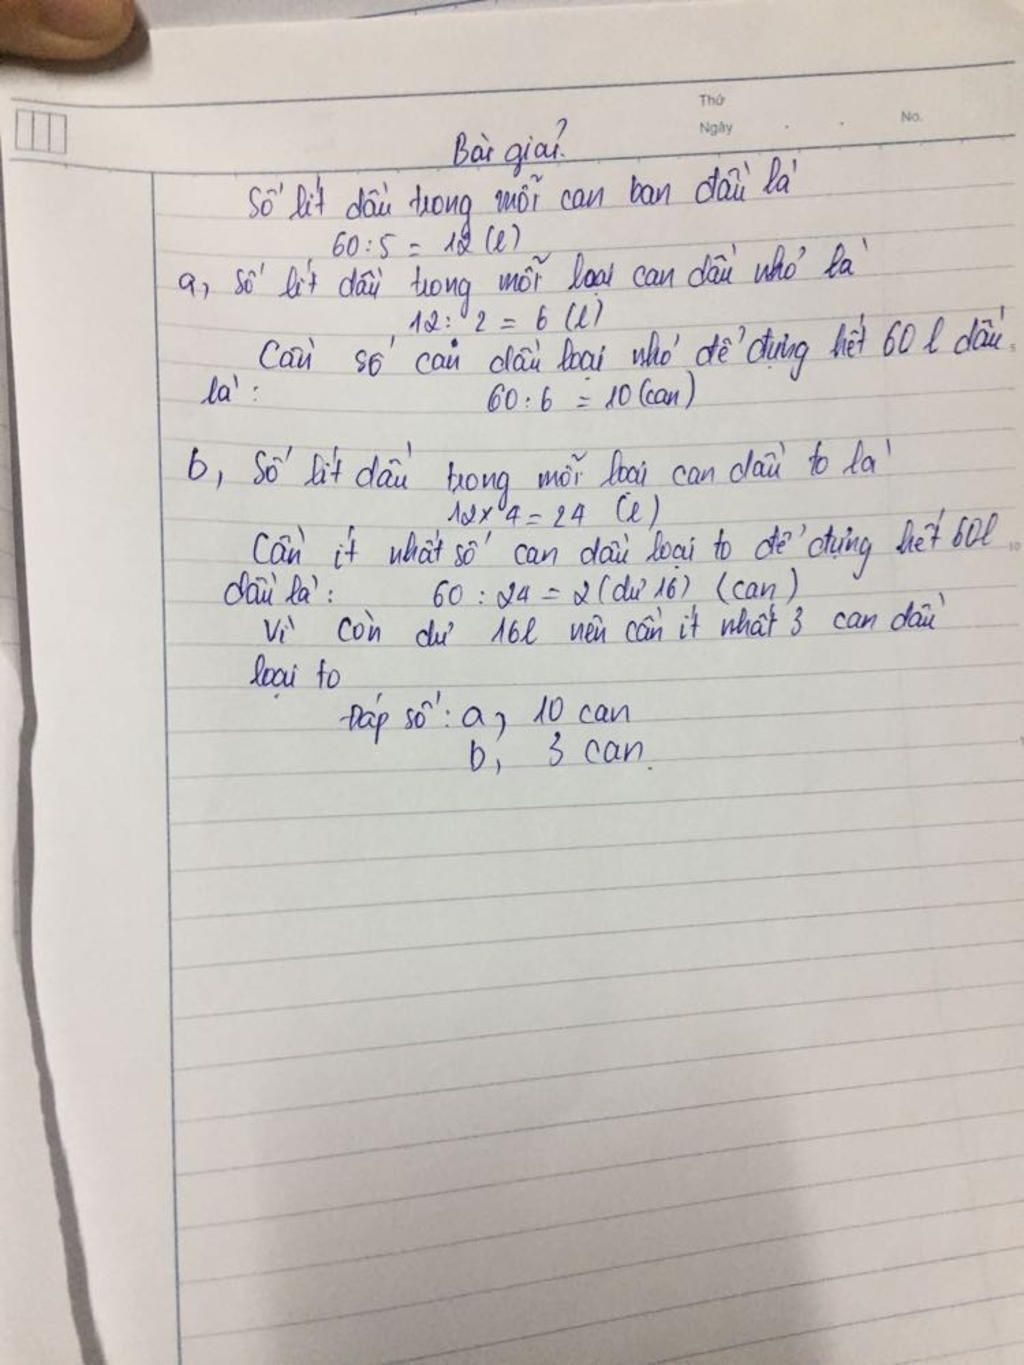 Thứ
Ngày . . No.
Bài giải
Số lít dầu trong mỗi can ban đầu là
60 : 5 = 12 (l)
a, Số lít dầu trong mỗi loại can dầu nhỏ là
12 : 2 = 6 (l)
Cần số can dầu loại nhỏ để đựng hết 60 l dầu
là : 60 : 6 = 10 (can)
b, Số lít dầu trong mỗi loại can dầu to là
12 x 4 = 24 (l)
Cần ít nhất số can dầu loại to để đựng hết 60l
dầu là : 60 : 24 = 2 (dư 16) (can)
Vì còn dư 16l nên cần ít nhất 3 can dầu
loại to
Đáp số : a, 10 can
b, 3 can.